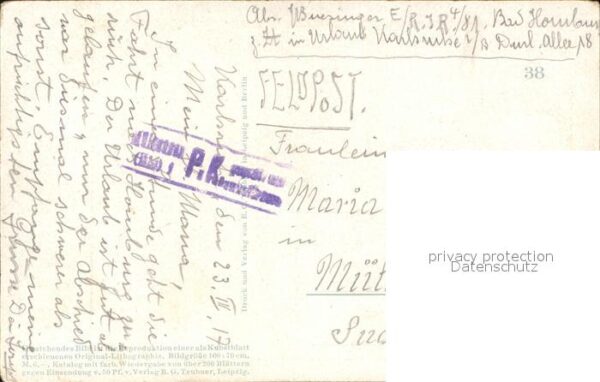 Abs. Wiesinger E/R.I.R 4/81, Bad Homburg
z. Zt in Urlaub Karlsruhe i/B Durl. Allee 18
38
FELDPOST.
Fräulein
Maria
in
Karlsruhe den 23. IV. 17
Meine Mama!
In einer Stunde geht die
Fahrt nach Homburg zu
rück. Der Urlaub ist gut ab
gelaufen, nur der Abschied
war diesmal schwerer als
sonst. Empfange meine
aufrichtigsten Grüsse
P.K.
Druck und Verlag von B. G. Teubner, Leipzig und Berlin
Vorstehendes Bild ist die Reproduktion einer als Kunstblatt
erschienenen Original-Lithographie. Bildgröße 100:70 cm,
M. 6.–. Katalog mit farb. Wiedergabe von über 200 Blättern
gegen Einsendung v. 50 Pf. v. Verlag B. G. Teubner, Leipzig.
privacy protection
Datenschutz